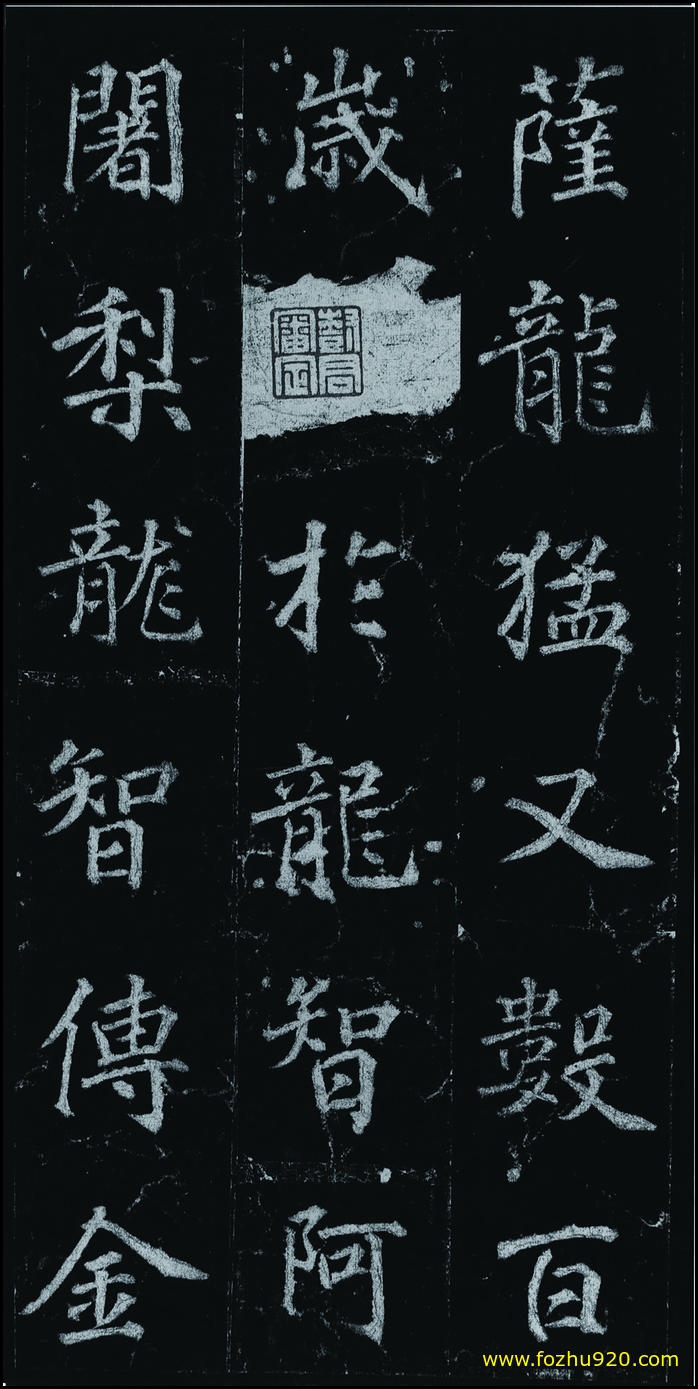 薩龍猛又數百
歲於龍智阿
闍梨龍智傳金
www.fozhu920.com